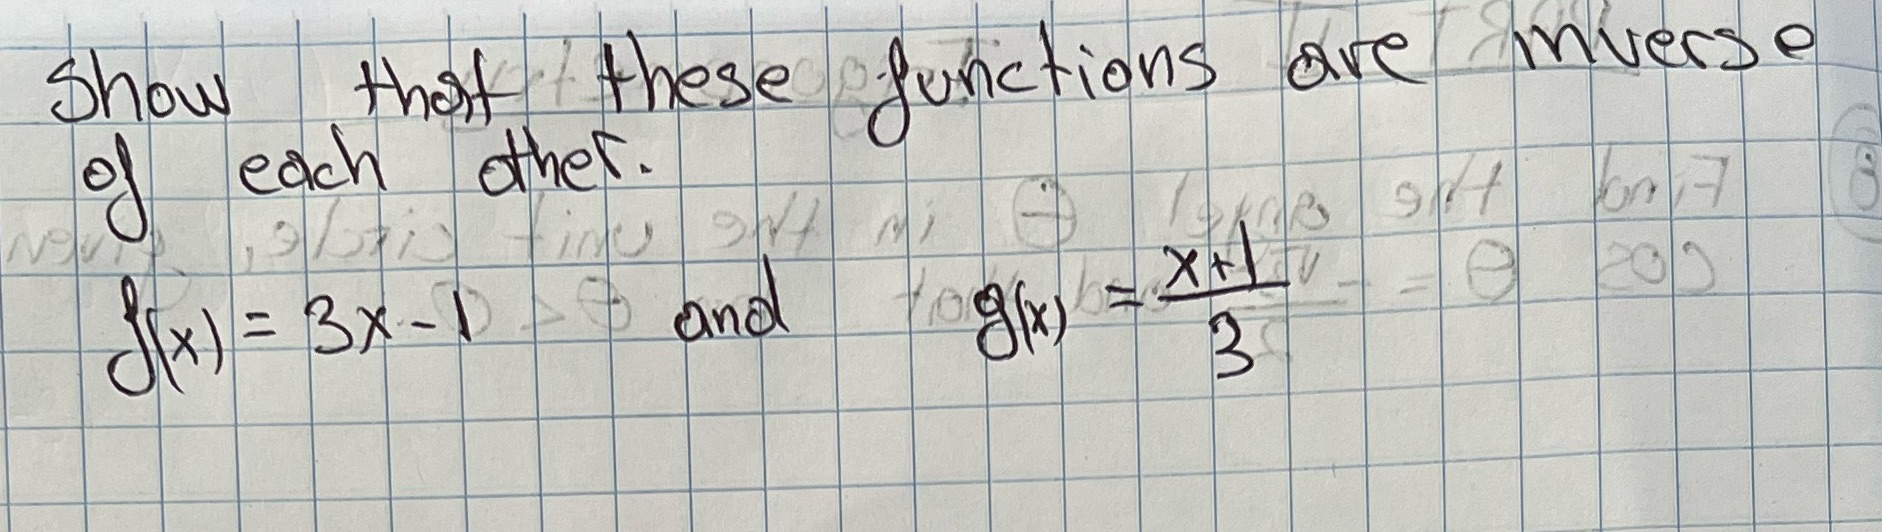 Show that these functions are inverse
of each other.
f(x) = 3x - 1 and g(x) = \frac{x+1}{3}